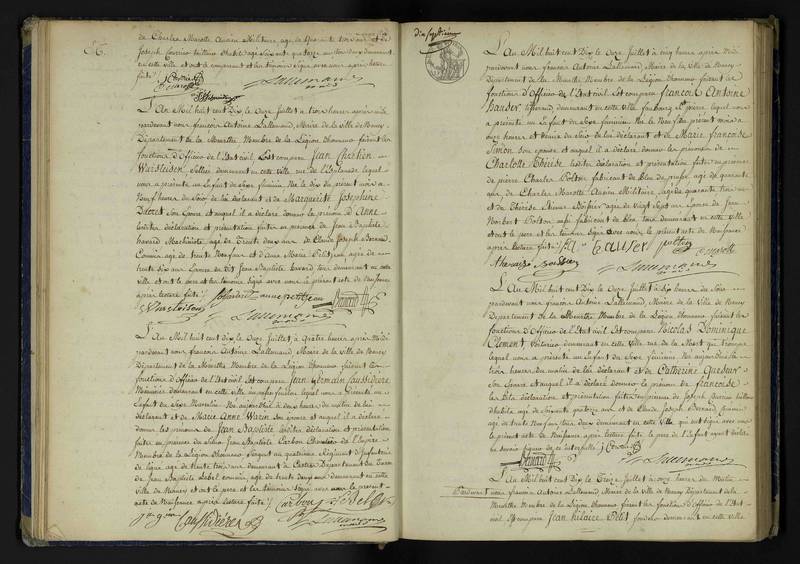 de Charles Marotte Ancien Militaire, age de quarante trois ans et de
Joseph Courrier tailleur d'habit age soixante quatorze ans tous deux demeurant
en cette ville et ont le comparant et les temoins signé avec nous après lecture
faite
Lallemand
L'An Mil huit cent Dix le Onze Juillet a trois heures après midi
pardevant nous françois Antoine Lallemand, Maire de la Ville de Nancy
Département de la Meurthe Membre de la Légion d'honneur faisant les
fonctions d'Officier de l'Etat civil, Est comparu Jean Chrétien
Wursteisen Sellier demeurant en cette ville rue de l'Esplanade lequel
nous a présenté un Enfant du Sexe féminin Né le dix du présent mois a
Neuf heures du Soir de lui déclarant et de Marguerite Josephine
son Epouse et auquel il a déclaré donner le prénom d'Anne
lesdites déclaration et présentation faites en présence de Jean Baptiste
havard Machiniste, age de trente deux ans de Claude Joseph Bernard
Commis age de trente Neuf ans et d'Anne Marie Petitjean, age de
trente six ans Epouse du dit Jean Baptiste havard tous demeurant en cette
ville et ont le père et les temoins signé avec nous le présent acte de Naissance
après lecture faite
Havard anne petitjean Bernard
Wursteisen Lallemand
L'An Mil huit cent Dix le Onze Juillet, a quatre heures après Midi
pardevant nous francois Antoine Lallemand Maire de la Ville de Nancy
Département de la Meurthe Membre de la Légion d'honneur faisant les
fonctions d'Officier de l'Etat civil Est comparu Jean Germain Caussidiere
Menuisier demeurant en cette ville lequel nous a présenté un
Enfant du Sexe Masculin Né aujourd'hui a deux heures du matin de lui
déclarant et de Marie Anne Warin Son épouse et auquel il a déclaré
donner les prénoms de Jean Baptiste lesdites déclaration et présentation
faites en présence de Jean Baptiste Carbon Chevalier de l'Empire
Membre de la Légion d'honneur Sergent au quatrième Regiment d'Infanterie
de ligne age de trente trois ans demeurant a Département du
de Jean Baptiste Lebel commis, age de trente deux ans demeurant en cette
Ville de Nancy et ont le père et les temoins Signé avec nous le présent
acte de Naissance après lecture faite
Carbon Lebel
Caussidiere Lallemand
dix septieme
L'An Mil huit cent Dix le Onze Juillet a cinq heures après Midi
pardevant nous francois Antoine Lallemand, Maire de la Ville de Nancy
Département de la Meurthe Membre de la Légion d'honneur faisant les
fonctions d'Officier de l'Etat civil Est comparu francois Antoine
hauser, tisserand, demeurant en cette ville, faubourg St pierre lequel nous
a présenté un Enfant du Sexe féminin Né le Neuf du présent mois a
onze heures et demie du Soir de lui déclarant et de Marie francoise
Simon Son épouse et auquel il a déclaré donner les prénoms de
Charlotte Thérèse lesdites déclaration et présentation faites en présence
de pierre Charles Poltin fabricant de bleu de prusse, age de quarante
ans, de Charles Marotte Ancien Militaire, age de quarante trois ans
et de Thérèse age de vingt Sept ans Epouse de Jean
Norbert Poltin aussi fabricant de bleu tous demeurant en cette ville
et ont le père et les temoins Signé avec nous le présent acte de Naissance
après lecture faite
hauser poltin Marotte
Lallemand
L'An Mil huit cent Dix le Onze Juillet a dix heures du Soir
pardevant nous francois Antoine Lallemand, Maire de la Ville de Nancy
Département de la Meurthe Membre de la Légion d'honneur faisant les
fonctions d'Officier de l'Etat civil Est comparu Nicolas Dominique
Clement Voiturier demeurant en cette ville rue de la
lequel nous a présenté un Enfant du Sexe féminin Né aujourd'hui a
trois heures du matin de lui déclarant et de Catherine
Son Epouse et auquel il a déclaré donner le prénom de francoise
lesdites déclaration et présentation faites en présence de Joseph Courrier tailleur
d'habits age de soixante quatorze ans et de Claude Joseph Bernard Commis
age de trente Neuf ans, tous deux demeurant en cette ville qui ont signé avec nous
le présent acte de Naissance après lecture faite le père de l'Enfant ayant déclaré
ne savoir signer de ce interpellé
Bernard Lallemand
L'An Mil huit cent Dix le Treize Juillet a onze heures du Matin
Pardevant nous francois Antoine Lallemand, Maire de la Ville de Nancy Département de la
Meurthe Membre de la Légion d'honneur faisant les fonctions d'Officier de l'Etat
civil Est comparu Jean hilaire Petit demeurant en cette ville